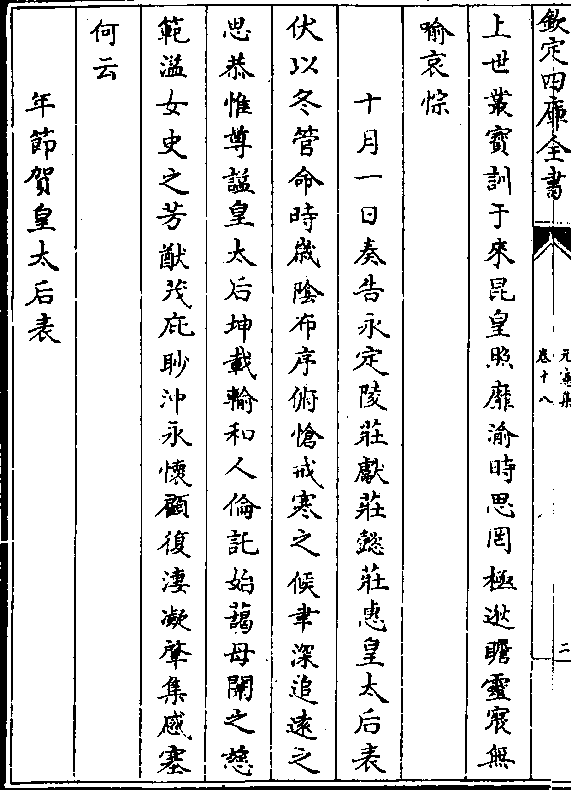 欽定四庫全書
元憲集
卷十八
二
上世叢寶訓于來昆皇照靡渝時思罔極逖瞻靈寢無
喻哀悰
十月一日奏告永定陵莊獻莊懿莊惠皇太后表
伏以冬管命時歲陰布序俯愴戒寒之候聿深追遠之
思恭惟尊謚皇太后坤載輸和人倫託始藹母閫之慈
範滋女史之芳猷茂庇眇沖永懷顧復淒凝肇集感塞
何云
年節賀皇太后表